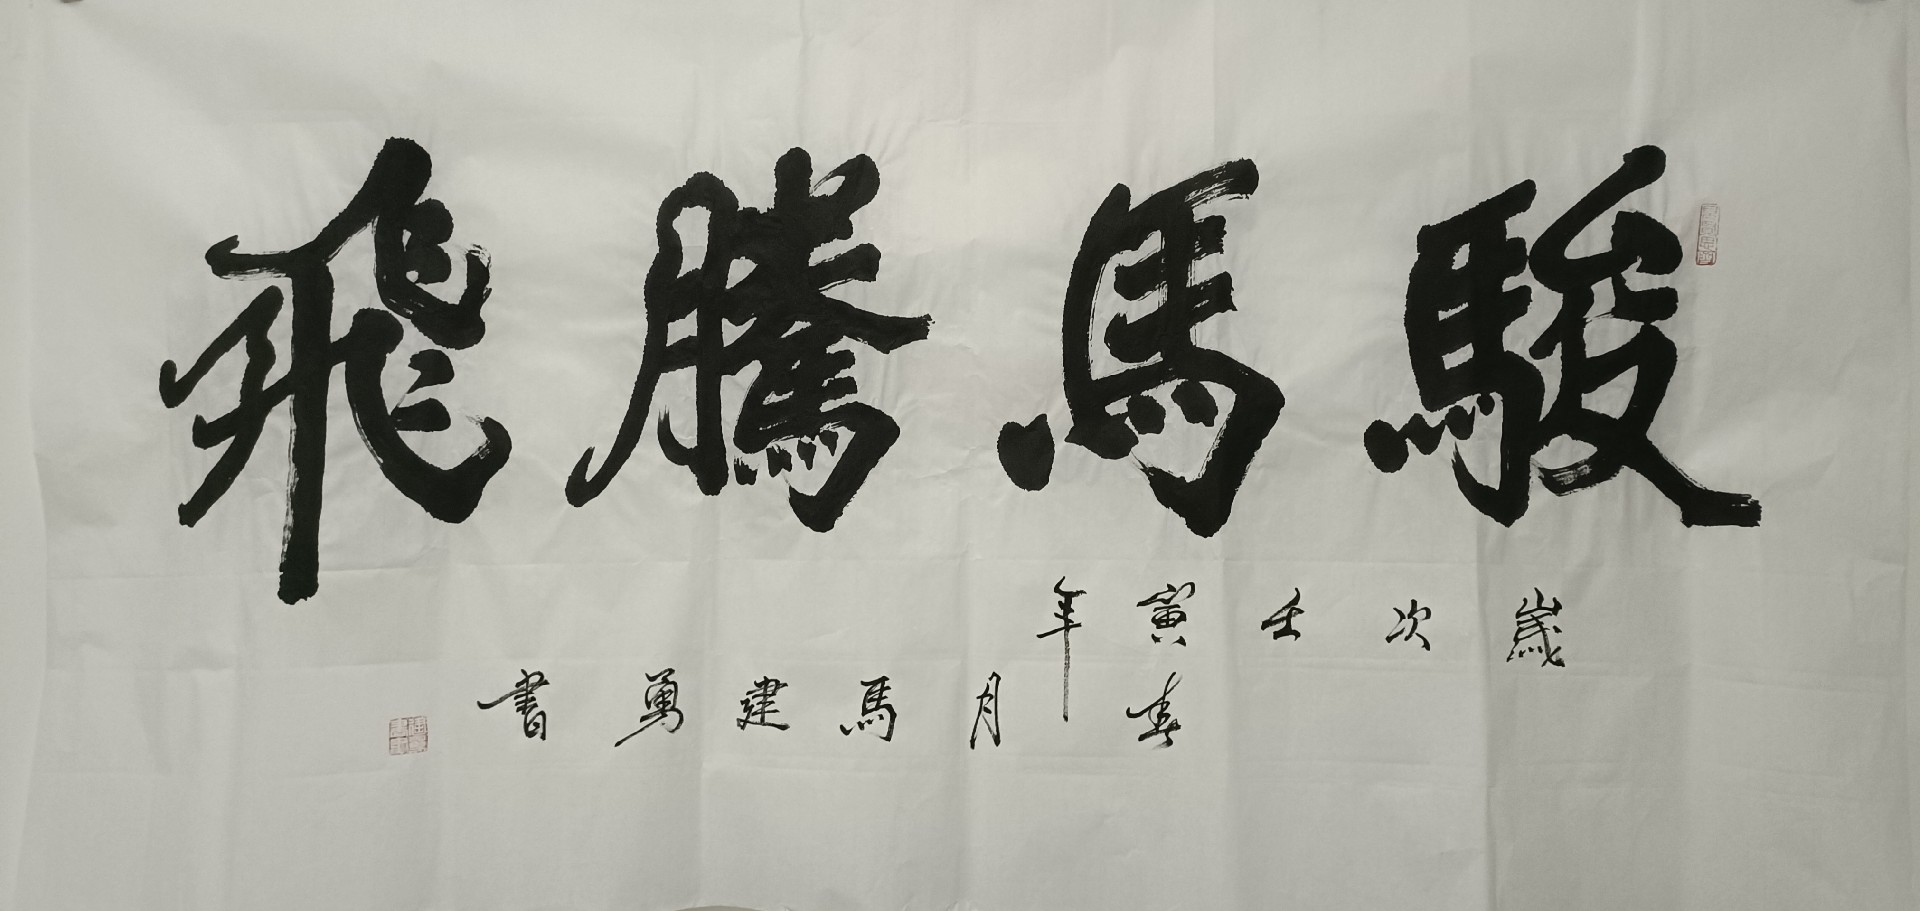 駿馬騰飛
歲次壬寅年
春月馬建勇書